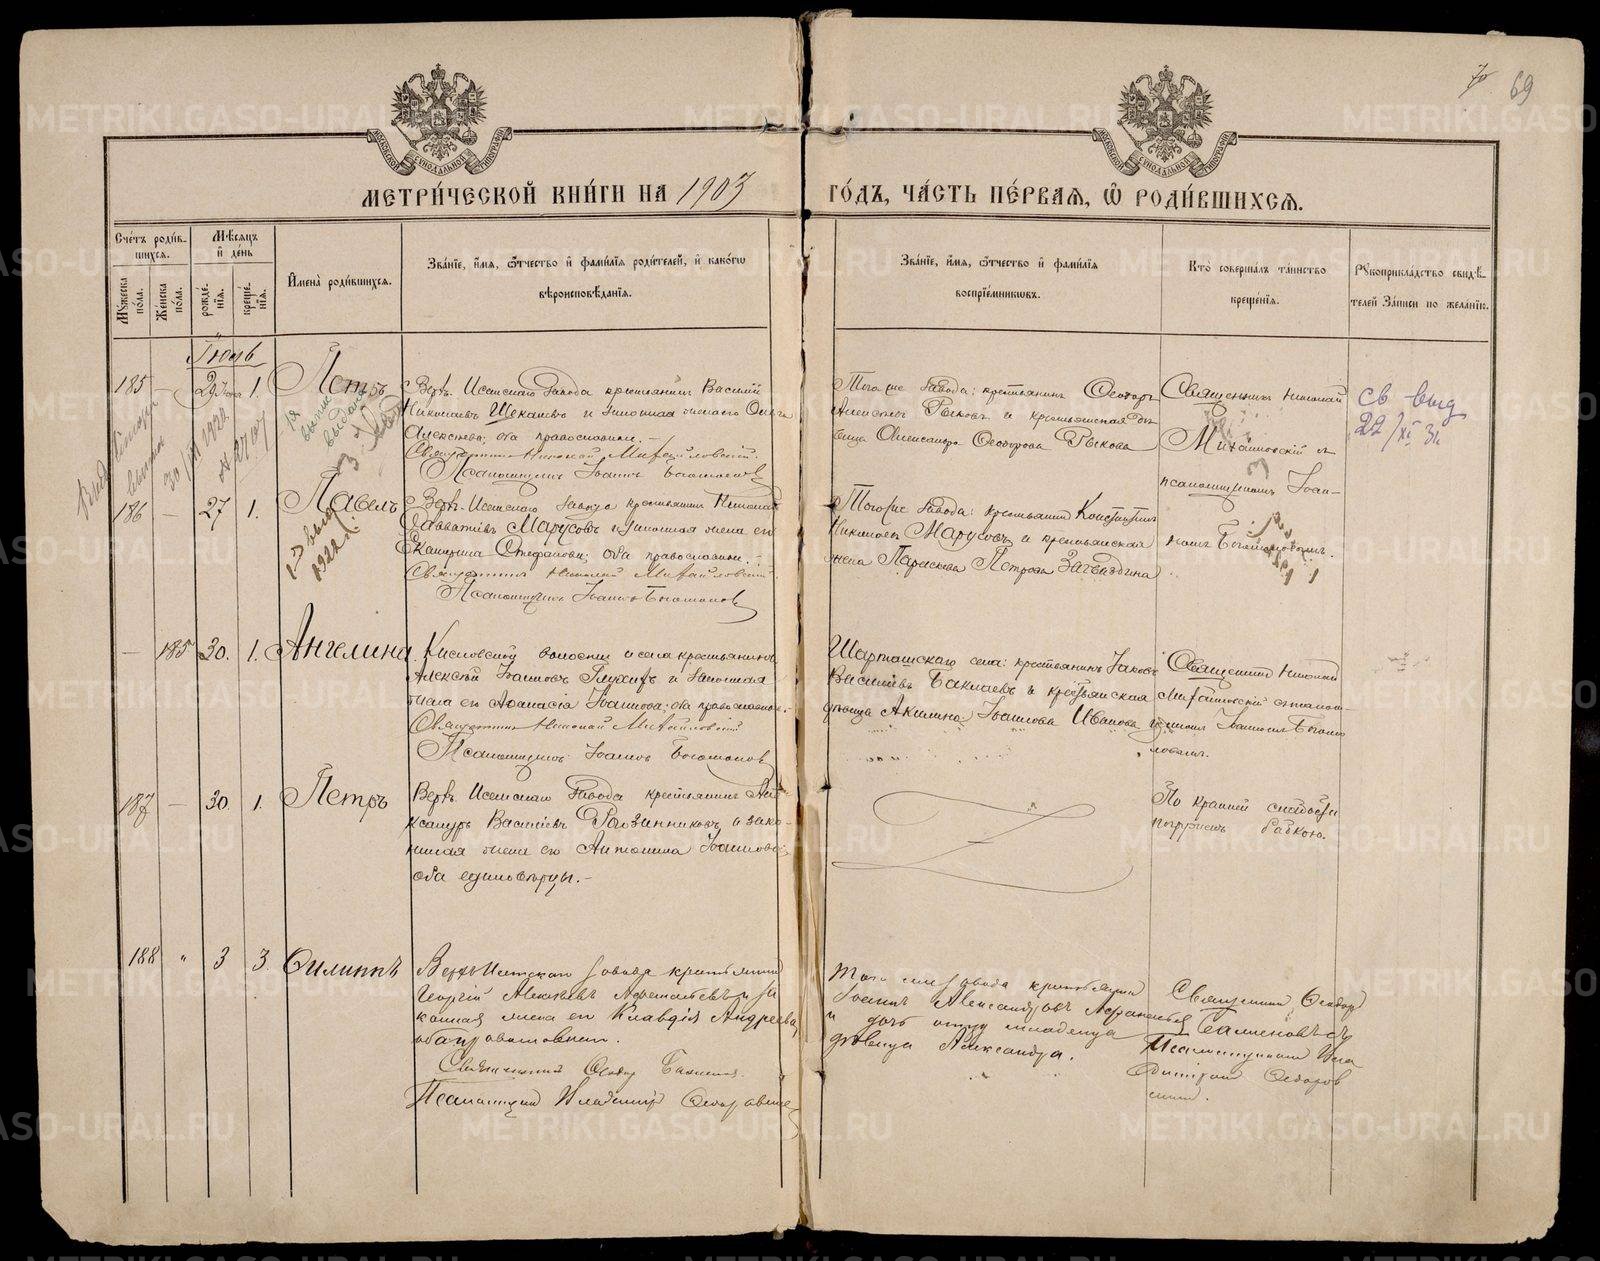 70 69
МОСКОВСКОЙ СУНОДАЛЬНОЙ ТИПОГРАФІИ
МОСКОВСКОЙ СУНОДАЛЬНОЙ ТИПОГРАФІИ
МЕТРИ́ЧЕСКОЙ КНИ́ГИ НА 1903 ГО́ДЪ, ЧА́СТЬ ПЕ́РВАЯ, Ѡ РОДИ́ВШИХСЯ.
Сче́тъ роди́вшихся.
Мѹжеска по́ла.
Же́нска по́ла.
Мѣсяцъ и де́нь
рожде́нія.
креще́нія.
Имена̀ роди́вшихся.
Зва́ніе, и́мя, ѻтчество и фами́лія роди́телей, и како́гѡ
вѣроисповѣ́данія.
Зва́ніе, и́мя, ѻтчество и фами́лія
воспріе́мникѡвъ.
Кто̀ соверша́лъ та́инство
креще́нія.
Рѹкоприкла́дство свидѣ́
телей за́писи по жела́нію.
Іюль
185 — 29 1. Петръ
Верх. Исетскаго Завода крестьянинъ Василій
Николаевъ Щекалевъ и законная жена его Ольга
Алексѣева; оба православные.—
Священникъ Николай Михайловскій.
Псаломщикъ Іоаннъ Богомолов
Того же Завода: крестьянинъ Ѳеодоръ
Алексѣевъ Рыковъ и крестьянская дѣ-
вица Александра Ѳеодорова Рыкова
Священникъ Николай
Михайловскій съ
псаломщикомъ Іоан-
номъ Богомоловымъ.
св выд
22/XI 31
30/III 1922
186 — 27 1. Павелъ
Верх. Исетскаго Завода крестьянинъ Николай
Савватіевъ Марусовъ и законная жена его
Екатерина Стефанова; оба православные.—
Священникъ Николай Михайловскій
Псаломщикъ Іоаннъ Богомолов
Того же Завода: крестьянинъ Константинъ
Николаевъ Марусовъ и крестьянская
жена Параскева Петрова Загваздина
1922
— 185 30. 1. Ангелина
Кисловской волости и села крестьянинъ
Алексѣй Іоанновъ Глухихъ и законная
жена его Аѳанасія Іоаннова; оба православные.
Священникъ Николай Михайловскій
Псаломщикъ Іоаннъ Богомолов
Шарташскаго села: крестьянинъ Іаковъ
Василіевъ Баклаевъ и крестьянская
дѣвица Акилина Іоаннова Иванова
Священникъ Николай
Михайловскій съ псалом-
щикомъ Іоанномъ Богомо
ловымъ.
187 — 30 1. Петръ
Верх. Исетскаго Завода крестьянинъ Але-
ксандръ Василіевъ Разинниковъ и зако-
нная жена его Антонина Іоаннова;
оба единовѣрцы.—
По крайней слабости
погруженъ бабкою.
188 " 3 3. Филиппъ
Верхъ Исетскаго завода крестьянинъ
Георгій Алексѣевъ и за
конная жена его Клавдія Андреева,
оба православные.
Священникъ Ѳеодор
Псаломщикъ Владиміръ
Того же завода крестьянинъ
Іоаннъ Александровъ
и дочь отца младенца
дѣвица Александра.
Священникъ Ѳеодор